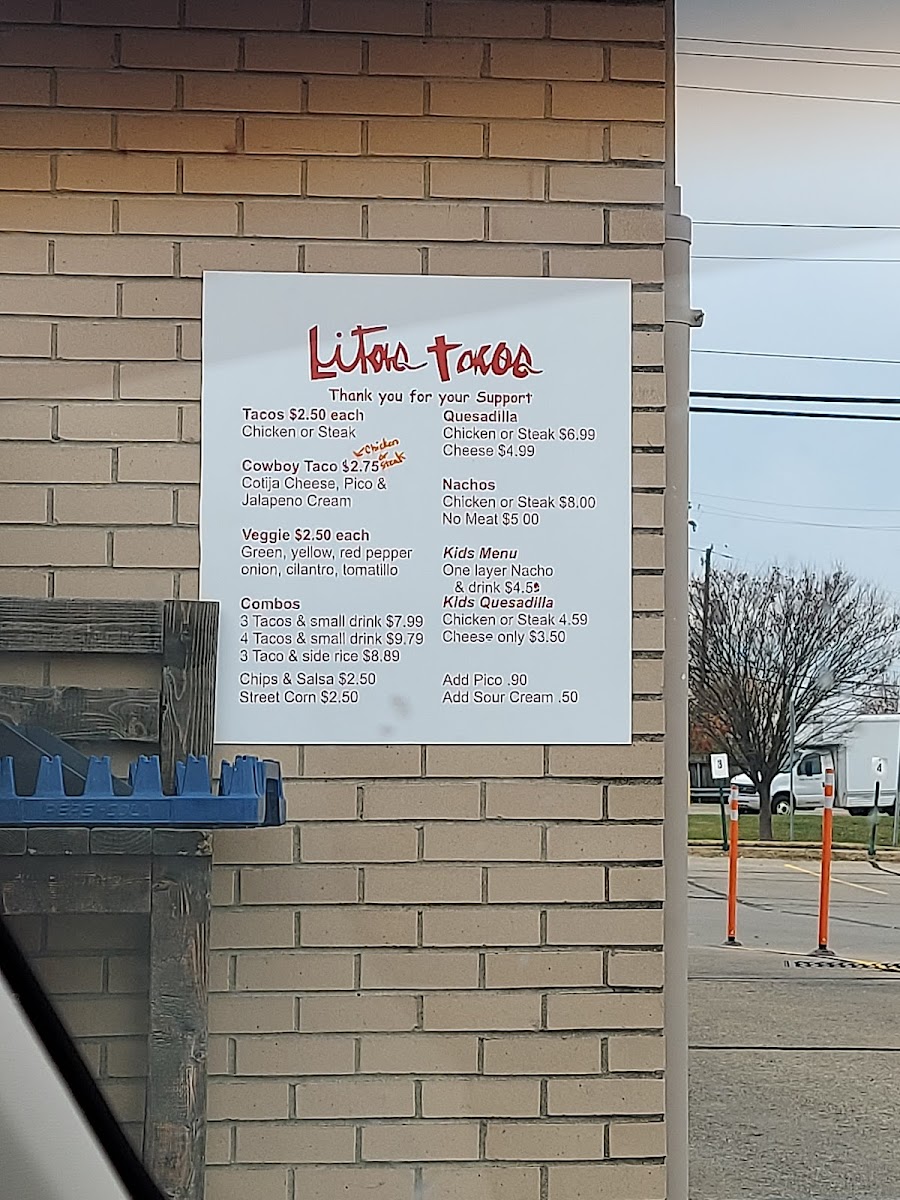 Litos tacos
Thank you for your Support
Tacos $2.50 each
Chicken or Steak
Chicken
or
Steak
Cowboy Taco $2.75
Cotija Cheese, Pico &
Jalapeno Cream
Veggie $2.50 each
Green, yellow, red pepper
onion, cilantro, tomatillo
Combos
3 Tacos & small drink $7.99
4 Tacos & small drink $9.79
3 Taco & side rice $8.89
Chips & Salsa $2.50
Street Corn $2.50
Quesadilla
Chicken or Steak $6.99
Cheese $4.99
Nachos
Chicken or Steak $8.00
No Meat $5 00
Kids Menu
One layer Nacho
& drink $4.59
KIds Quesadilla
Chicken or Steak 4.59
Cheese only $3.50
Add Pico .90
Add Sour Cream .50
3
4